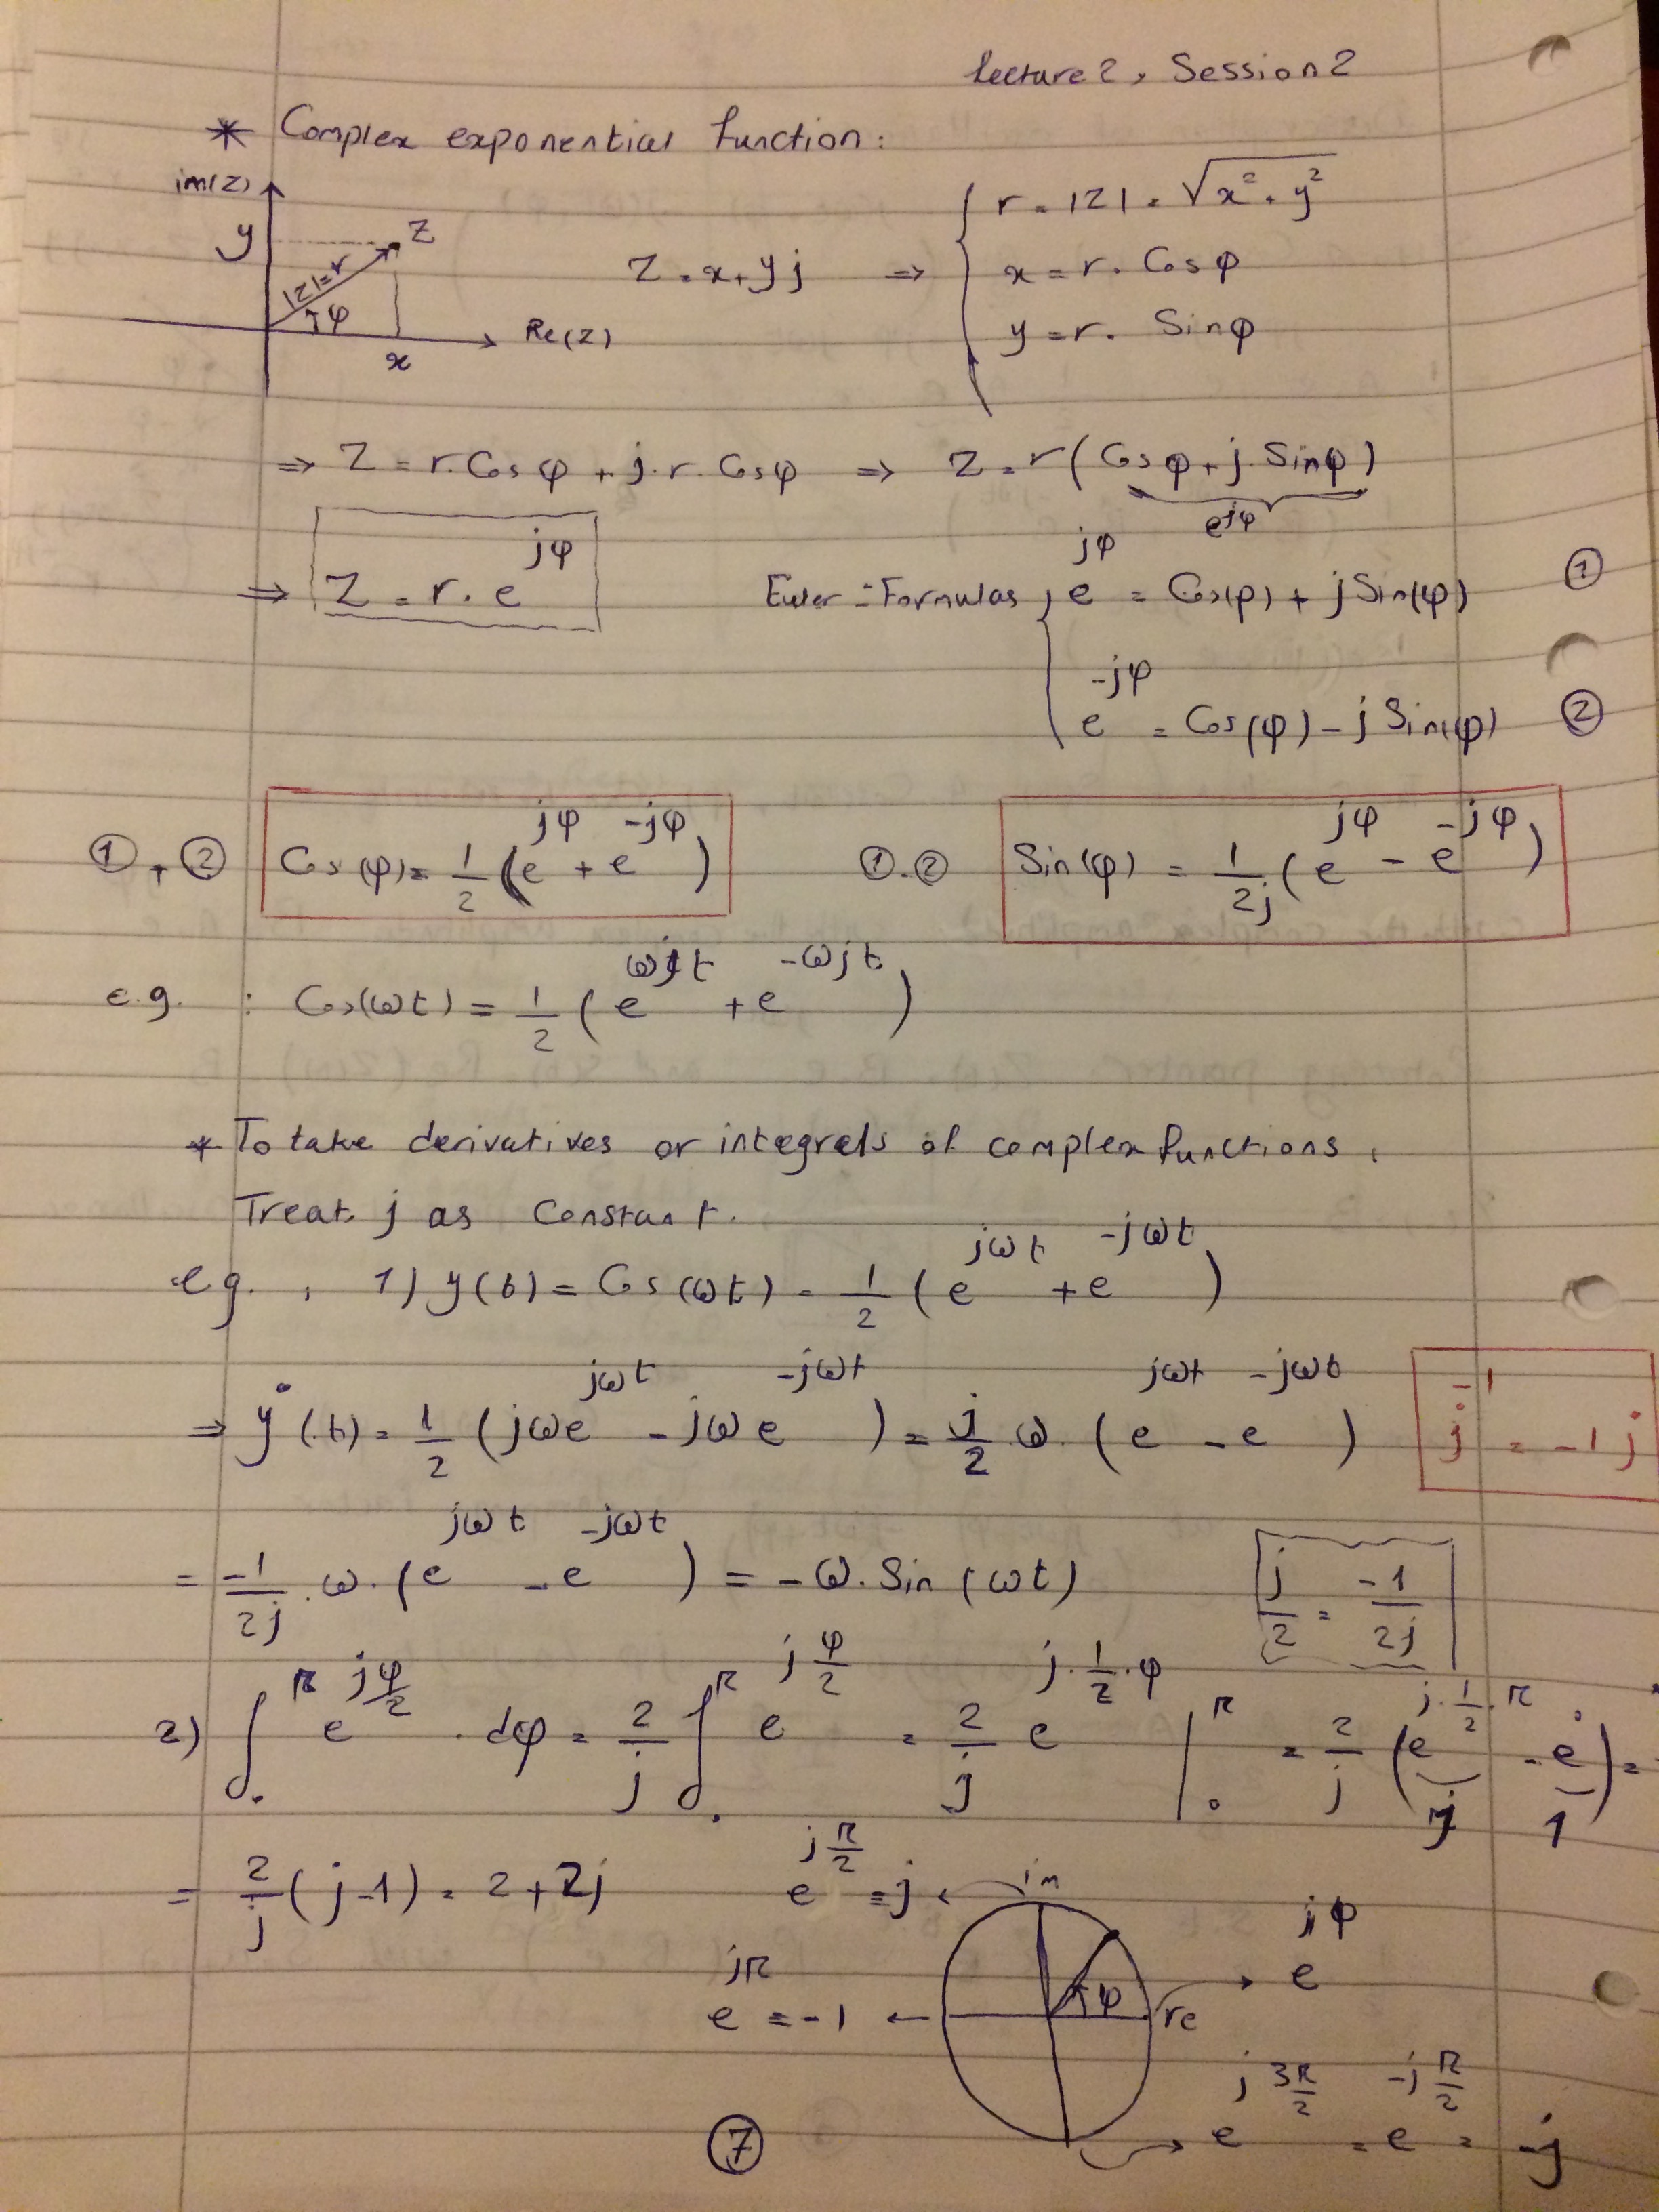 Lecture 2, Session 2
* Complex exponential function:
im(z)
y
z
|z|=r
φ
Re(z)
x
z = x + yj ⇒ { r = |z| = √(x² + y²)
x = r . Cosφ
y = r . Sinφ
⇒ z = r.Cosφ + j.r.Cosφ ⇒ z = r(Cosφ + j.Sinφ)
e^{jφ}
⇒ z = r.e^{jφ}
Euler-Formulas { e^{jφ} = Cos(φ) + jSin(φ) ①
e^{-jφ} = Cos(φ) - jSin(φ) ②
①+② Cos(φ) = 1/2 (e^{jφ} + e^{-jφ}) ①-② Sin(φ) = 1/2j (e^{jφ} - e^{-jφ})
e.g. : Cos(ωt) = 1/2 (e^{ωjt} + e^{-ωjt})
* To take derivatives or integrals of complex functions,
Treat j as Constant.
e.g. , 1) y(t) = Cos(ωt) = 1/2 (e^{jωt} + e^{-jωt})
⇒ ẏ(t) = 1/2 (jωe^{jωt} - jωe^{-jωt}) = j/2 ω. (e^{jωt} - e^{-jωt}) j^{-1} = -1j
= -1/2j . ω. (e^{jωt} - e^{-jωt}) = -ω.Sin(ωt) j/2 = -1/2j
2) ∫₀^π e^{jφ/2} . dφ = 2/j ∫₀^π e^{jφ/2} = 2/j e^{j.1/2.φ} |₀^π = 2/j (e^{j.1/2.π} - e^0) =
j 1
= 2/j (j-1) = 2+2j e^{jπ/2} = j ← im
e^{jφ}
e^{jπ} = -1 ← φ re
e^{j3π/2} = e^{-jπ/2} = -j
⑦